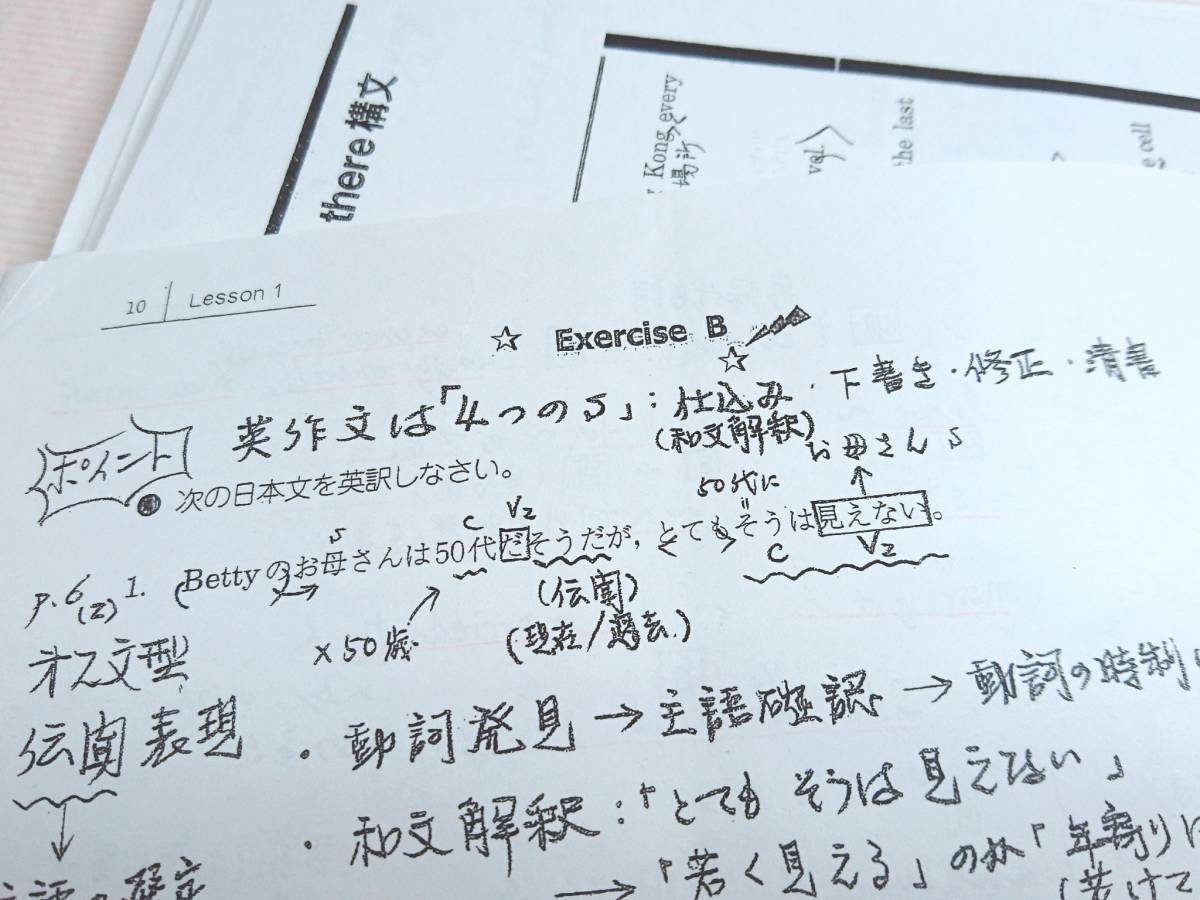 there構文
Kong every
場所
the last
cell
10 Lesson 1
☆ Exercise B ☆
ポイント
英作文は「4つのS」:仕込み・下書き・修正・清書
(和文解釈)
次の日本文を英訳しなさい。
お母さん S
50代に
S C V2
p.6(2) 1. Bettyのお母さんは50代だそうだが,とてもそうは見えない。
C V2
(伝聞)
×50歳
(現在/過去)
第2文型
伝聞表現
・動詞発見→主語確認→動詞の時制
・和文解釈:「とてもそうは見えない」
→「若く見える」のか「年寄りに